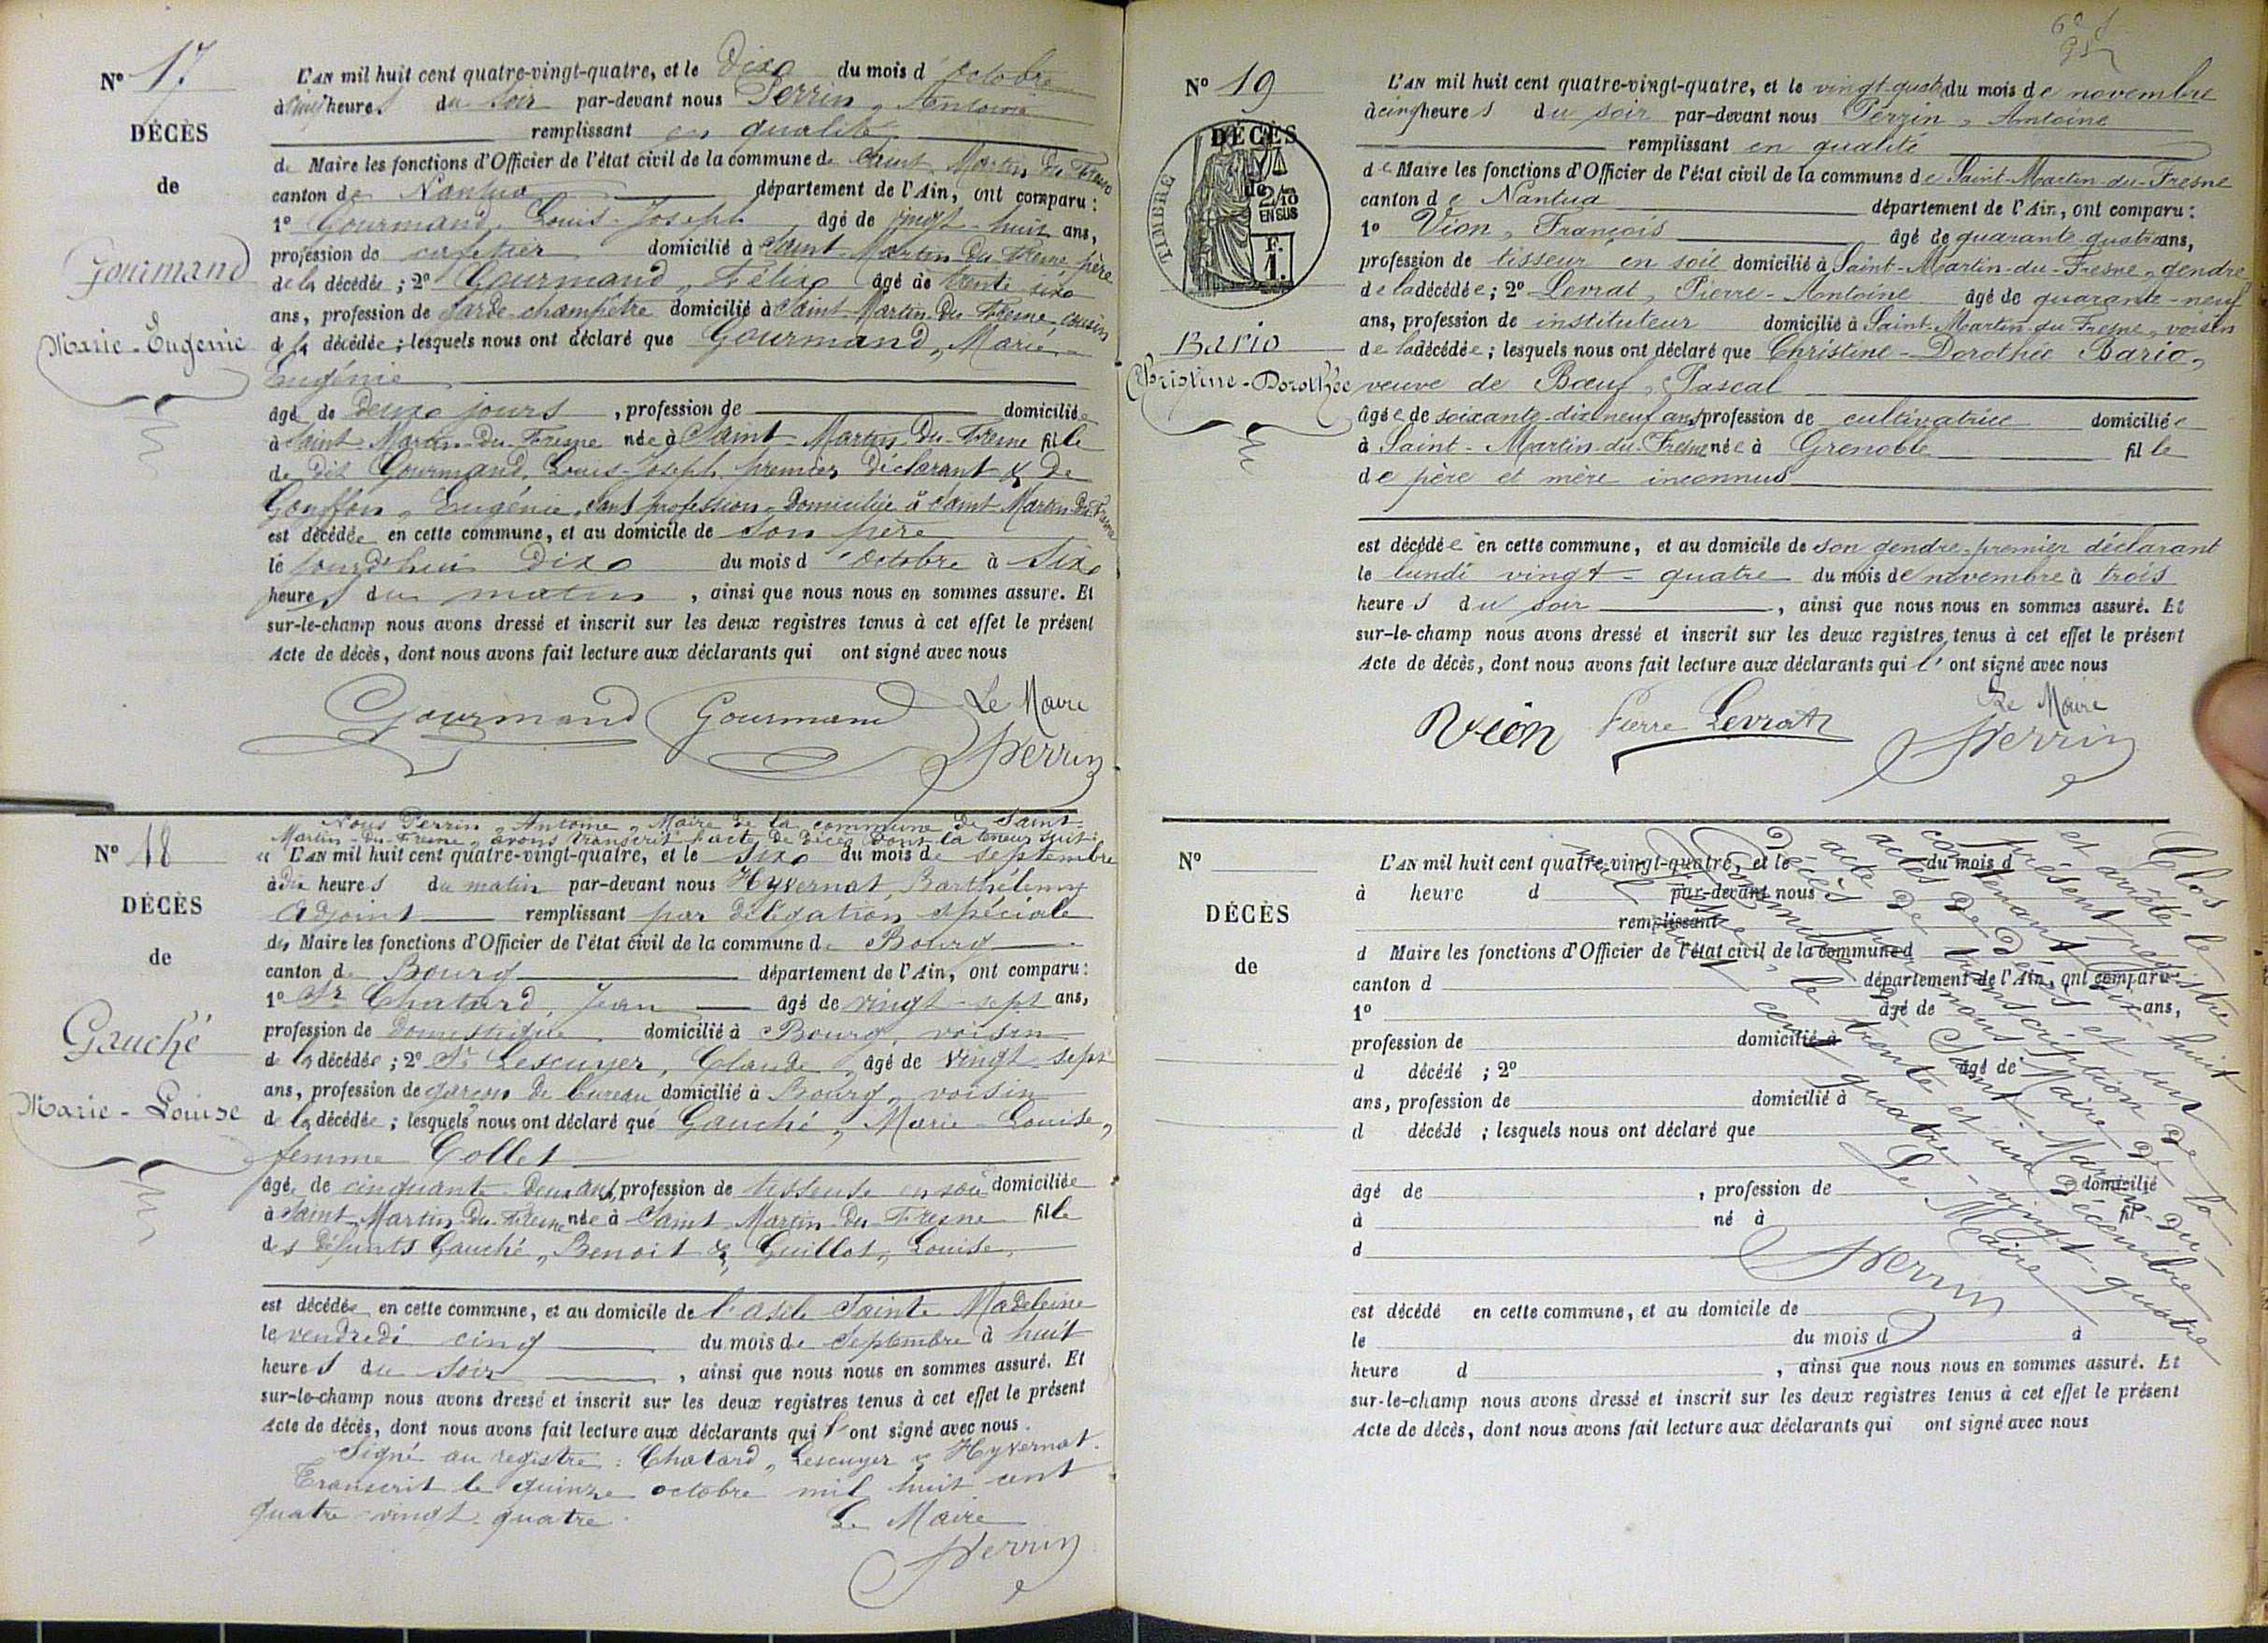 N° 17
DÉCÈS
de
Gourmand
Marie-Eugénie
L'AN mil huit cent quatre-vingt-quatre, et le Dix du mois d'octobre
à cinq heures du soir par-devant nous Perrin, Antoine
remplissant en qualité
de Maire les fonctions d'Officier de l'état civil de la commune de Saint-Martin-Du-Fresne
canton de Nantua département de l'Ain, ont comparu :
1° Gourmand, Louis-Joseph âgé de vingt-huit ans,
profession de domicilié à Saint-Martin-Du-Fresne, père
de la décédée ; 2° Gourmand, Félix âgé de trente six
ans, profession de garde-champêtre domicilié à Saint-Martin-Du-Fresne, cousin
de la décédée ; lesquels nous ont déclaré que Gourmand, Marie-
Eugénie
âgé de Deux jours, profession de domiciliée
à Saint-Martin-Du-Fresne née à Saint-Martin-Du-Fresne fille
de dit Gourmand, Louis-Joseph, premier Déclarant & De
Gouffon, Eugénie, sans profession, Domiciliée à Saint-Martin-Du-Fresne
est décédée en cette commune, et au domicile de son père
le jourd'hui Dix du mois d'octobre à Six
heures du matin, ainsi que nous nous en sommes assuré. Et
sur-le-champ nous avons dressé et inscrit sur les deux registres tenus à cet effet le présent
Acte de décès, dont nous avons fait lecture aux déclarants qui ont signé avec nous
Gourmand Gourmand Le Maire
Perrin
N° 18
DÉCÈS
de
Gauché
Marie-Louise
Nous Perrin, Antoine, Maire de la commune de Saint-
Martin-Du-Fresne, avons transcrit l'acte De Décès Dont la teneur suit :
« L'AN mil huit cent quatre-vingt-quatre, et le six du mois de septembre
à dix heures du matin par-devant nous Hyvernat Barthélemy
Adjoint remplissant par délégation spéciale
du Maire les fonctions d'Officier de l'état civil de la commune de Bourg
canton de Bourg département de l'Ain, ont comparu :
1° Sr Chatard, Jean âgé de vingt-sept ans,
profession de Domestique domicilié à Bourg, voisin
de la décédée ; 2° Sr Lescuyer, Claude, âgé de vingt-sept
ans, profession de garçon de bureau domicilié à Bourg, voisin
de la décédée ; lesquels nous ont déclaré que Gauché, Marie-Louise,
femme Collet
âgée de cinquante-Deux ans, profession de tisseuse en soie domiciliée
à Saint-Martin-Du-Fresne née à Saint-Martin-Du-Fresne fille
des défunts Gauché, Benoit & Guillot, Louise,
est décédée en cette commune, et au domicile de l'asile Sainte Madeleine
le vendredi cinq du mois de Septembre à huit
heures du soir, ainsi que nous nous en sommes assuré. Et
sur-le-champ nous avons dressé et inscrit sur les deux registres tenus à cet effet le présent
Acte de décès, dont nous avons fait lecture aux déclarants qui l'ont signé avec nous.
Signé au registre : Chatard, Lescuyer & Hyvernat.
Transcrit le quinze octobre mil huit cent
quatre-vingt-quatre.
Le Maire
Perrin
N° 19
DÉCÈS
de
TIMBRE
2/10
EN SUS
F.
1.
Bario
Christine-Dorothée
L'AN mil huit cent quatre-vingt-quatre, et le vingt-quatre du mois de novembre
à cinq heures du soir par-devant nous Perrin, Antoine
remplissant en qualité
de Maire les fonctions d'Officier de l'état civil de la commune de Saint-Martin-du-Fresne
canton de Nantua département de l'Ain, ont comparu :
1° Vion, François âgé de quarante-quatre ans,
profession de tisseur en soie domicilié à Saint-Martin-du-Fresne, gendre
de la décédée ; 2° Levrat, Pierre-Antoine âgé de quarante-neuf
ans, profession de instituteur domicilié à Saint-Martin-du-Fresne, voisin
de la décédée ; lesquels nous ont déclaré que Christine-Dorothée Bario,
veuve de Bœuf, Pascal
âgée de soixante-dix neuf ans, profession de cultivatrice domiciliée
à Saint-Martin-du-Fresne née à Grenoble fille
de père et mère inconnus
est décédée en cette commune, et au domicile de son gendre, premier déclarant
le lundi vingt-quatre du mois de novembre à trois
heures du soir, ainsi que nous nous en sommes assuré. Et
sur-le-champ nous avons dressé et inscrit sur les deux registres tenus à cet effet le présent
Acte de décès, dont nous avons fait lecture aux déclarants qui l'ont signé avec nous
Vion Pierre Levrat Le Maire
Perrin
N°
DÉCÈS
de
L'AN mil huit cent quatre-vingt-quatre, et le du mois d
à heure d par-devant nous
remplissant
d Maire les fonctions d'Officier de l'état civil de la commune d
canton d département de l'Ain, ont comparu
1° âgé de ans,
profession de domicilié à
d décédé ; 2° âgé de
ans, profession de domicilié à
d décédé ; lesquels nous ont déclaré que
âgé de , profession de domicilié
à né à fil
d
est décédé en cette commune, et au domicile de
le du mois d à
heure d , ainsi que nous nous en sommes assuré. Et
sur-le-champ nous avons dressé et inscrit sur les deux registres tenus à cet effet le présent
Acte de décès, dont nous avons fait lecture aux déclarants qui ont signé avec nous
Clos
et arrêté le
présent registre
contenant dix-huit
actes de Décès et un
acte de transcription de
Décès par nous Maire de la
commune de Saint-Martin-du-
Fresne, le trente et un Décembre
mil huit cent quatre-vingt-quatre
Le Maire
Perrin